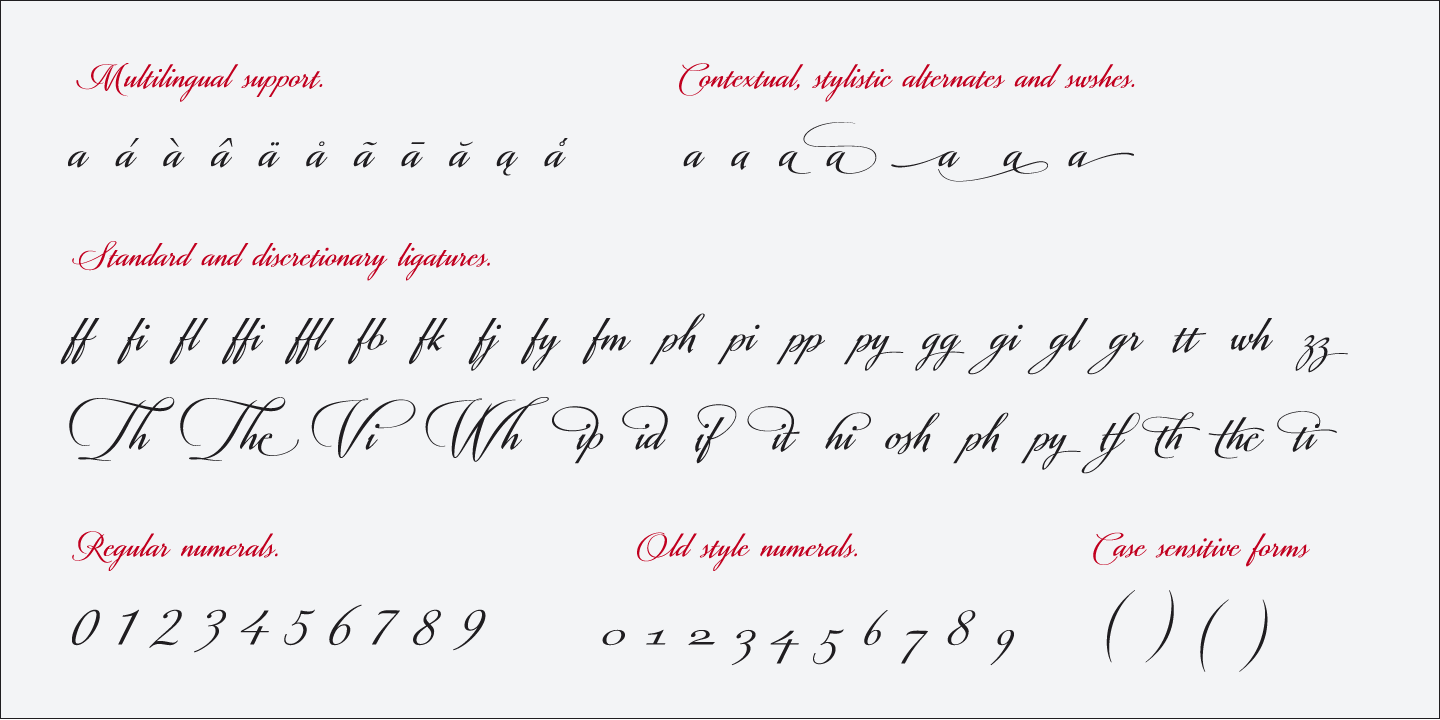 Multilingual support.
a á à â ä å ã ā ă ą ǻ
Contextual, stylistic alternates and swshes.
a a a a a a a
Standard and discretionary ligatures.
ff fi fl ffi ffl fb fk fj fy fm ph pi pp py gg gi gl gr tt wh zz
Th The Vi Wh ip id if it hi osh ph py tf th the ti
Regular numerals.
0 1 2 3 4 5 6 7 8 9
Old style numerals.
0 1 2 3 4 5 6 7 8 9
Case sensitive forms
( ) ( )